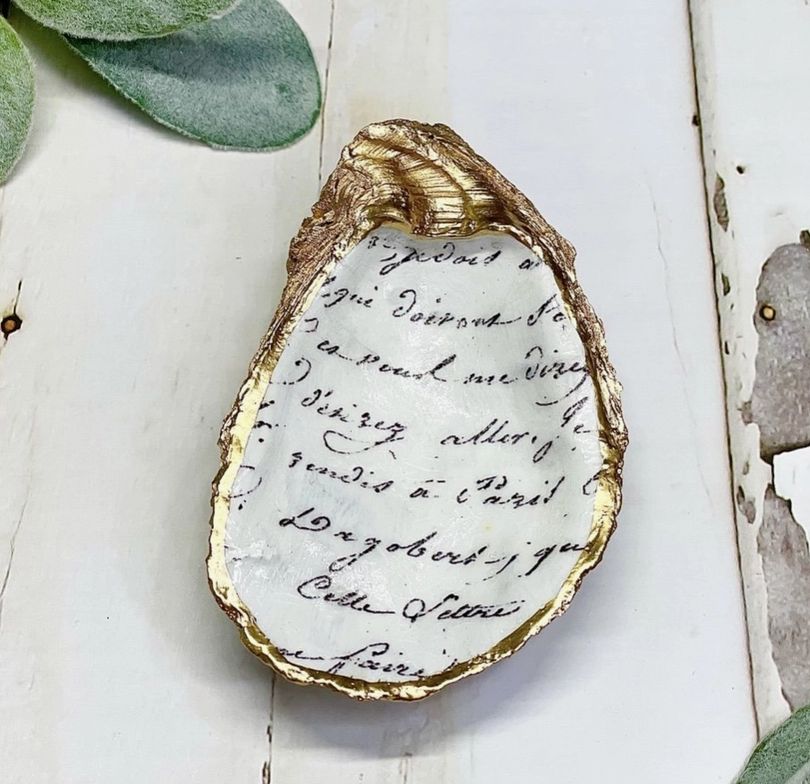 je dois a
qui doivent
me direz
désirez aller, je
rendis à Paris
Dagobert j que
Cette Lettre
faire